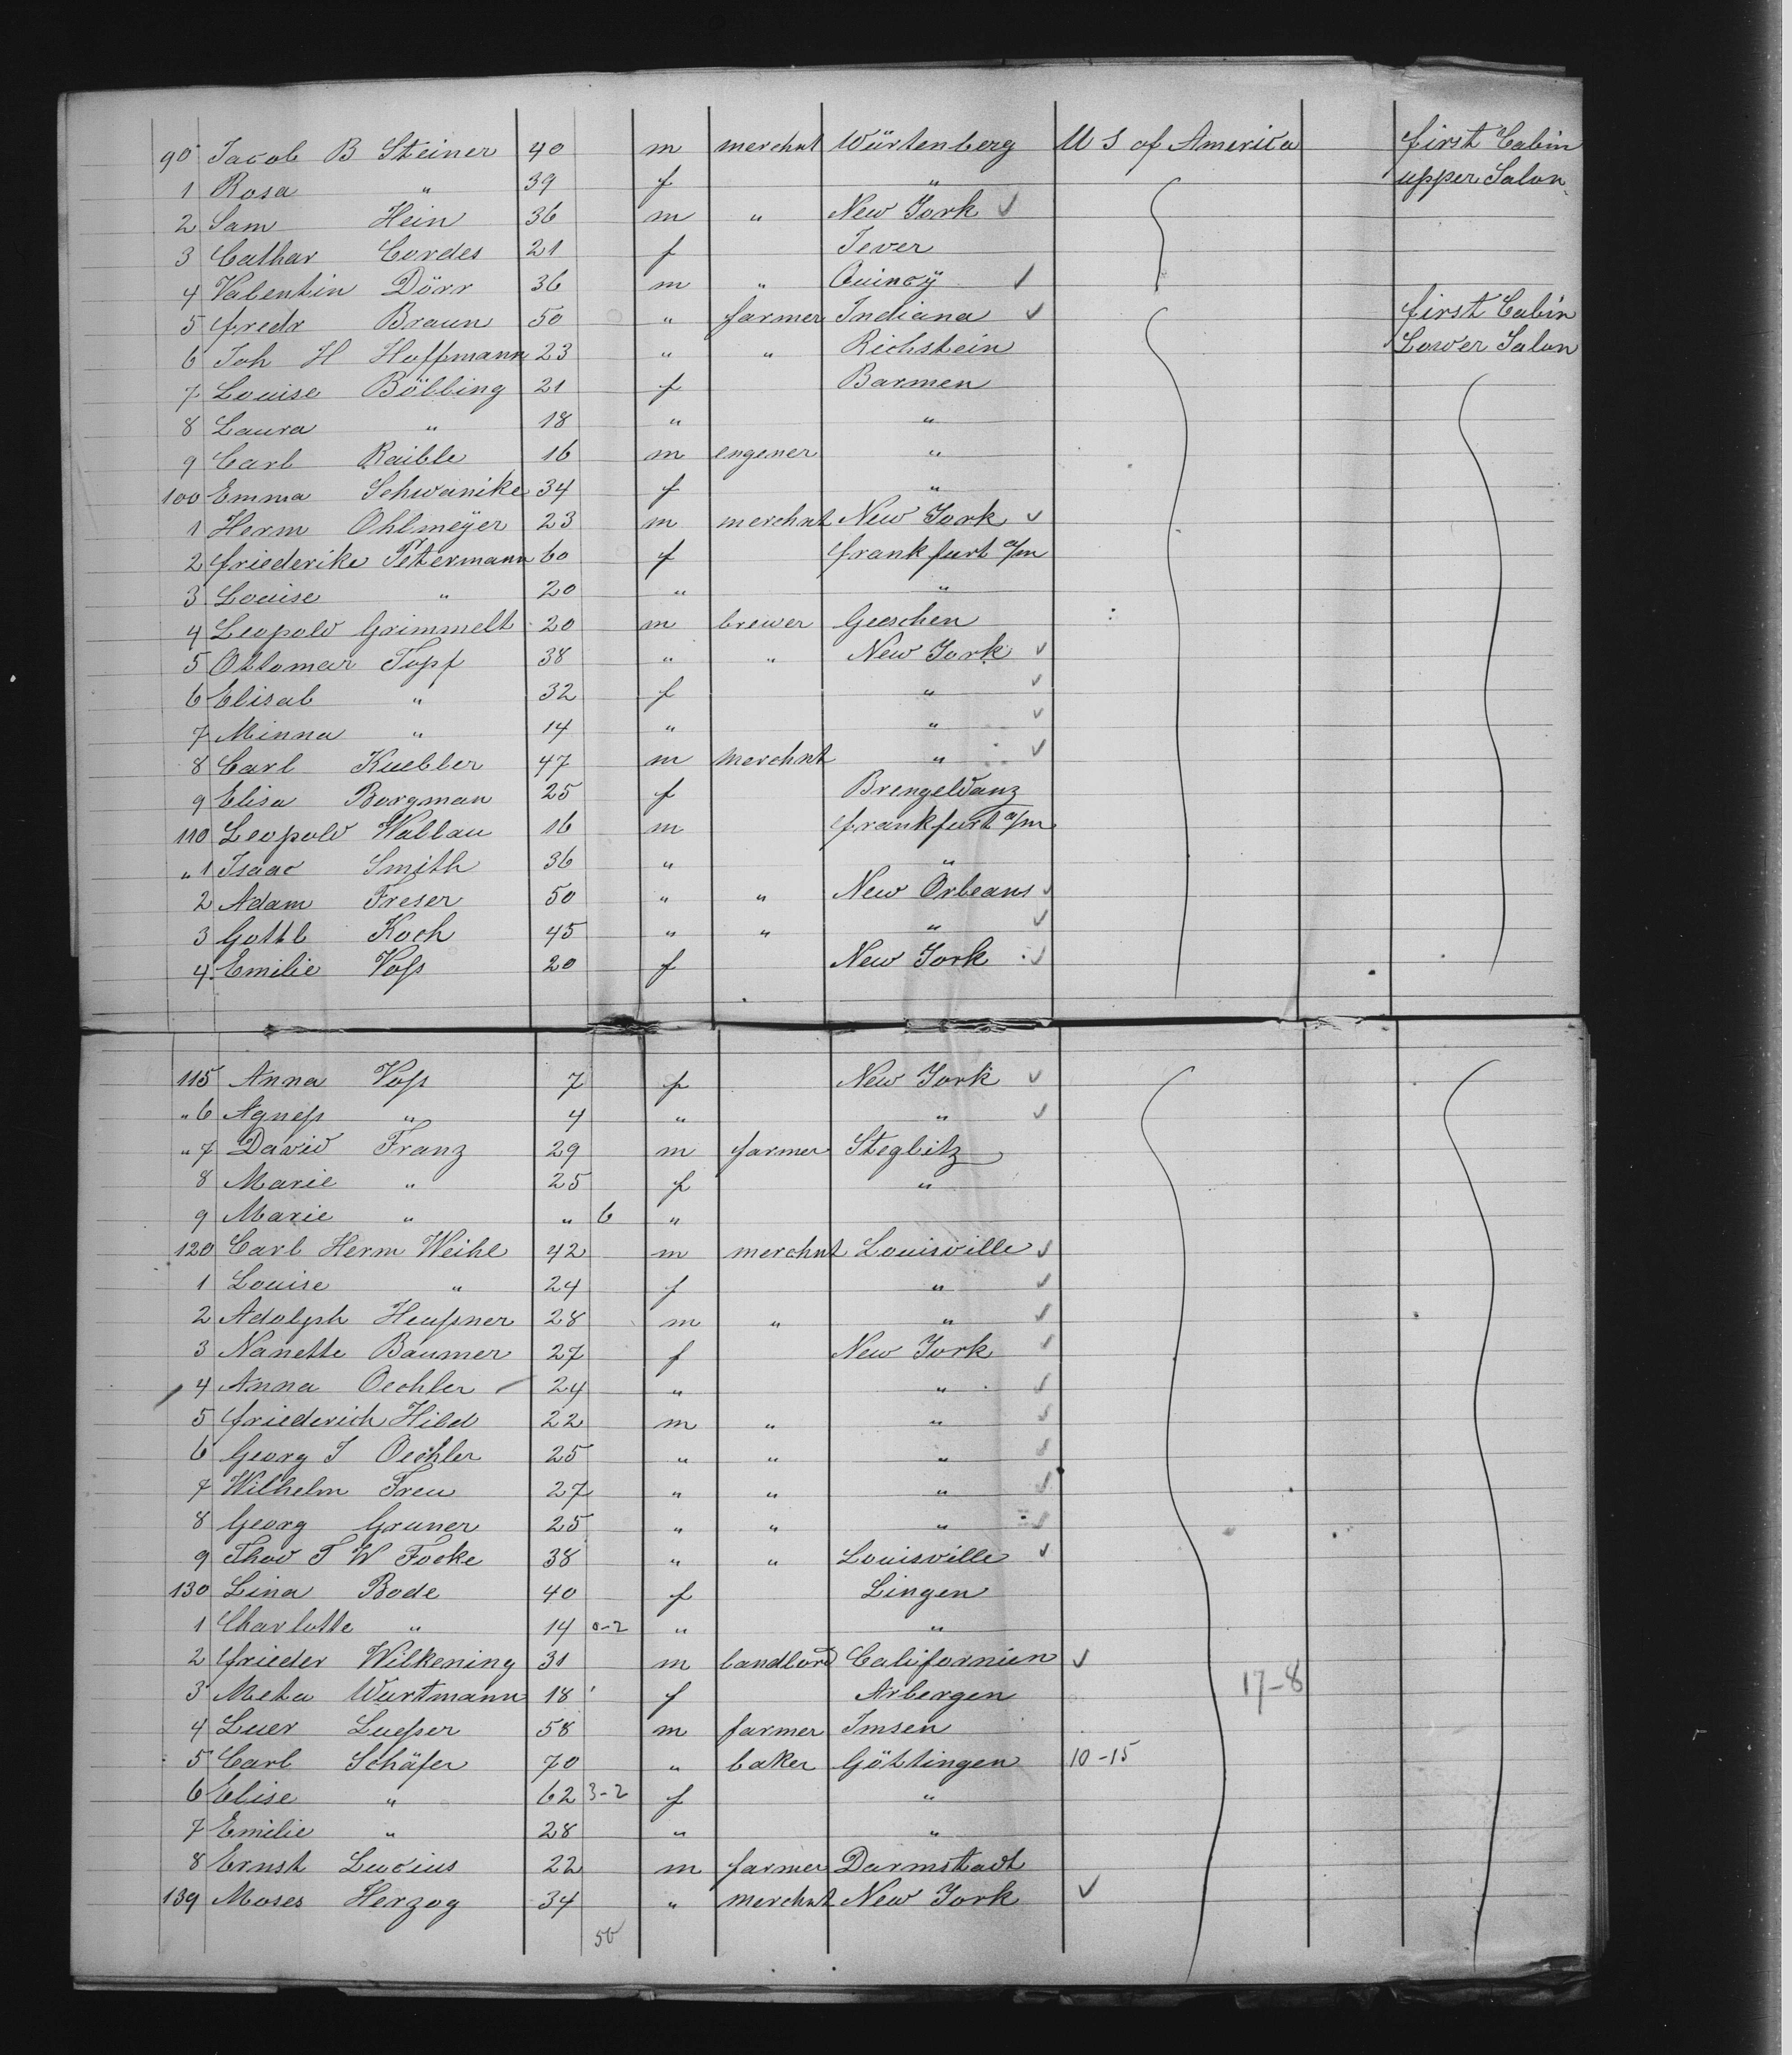 90 Jacob B Steiner 40 m merchnt Würtenberg U S of America first Cabin
1 Rosa " 39 f " upper Salon
2 Sam Hein 36 m " New York ✓
3 Cathar Cordes 21 f Jever
4 Valentin Dörr 36 m " Quincÿ ✓
5 fredr Braun 50 " farmer Indiana ✓ first Cabin
6 Joh H Hoffmann 23 " " Richstein Lower Salon
7 Louise Bölling 21 f Barmen
8 Laura " 18 " "
9 Carl Raible 16 m engener "
100 Emma Schwanike 34 f "
1 Herm Ohlmeÿer 23 m merchnt New York ✓
2 friederike Petermann 60 f frankfurt a/m
3 Louise " 20 " "
4 Leopold Grimmelt 20 m brewer Geeschen
5 Ottomar Topf 38 " " New York ✓
6 Elisab " 32 f " ✓
7 Minna " 14 " " ✓
8 Carl Kuebler 47 m merchnt " ✓
9 Elisa Borgman 25 f Brengeldanz
110 Leopold Wallau 16 m frankfurt a/m
" 1 Isaac Smith 36 " "
2 Adam Freser 50 " " New Orleans ✓
3 Gottl Koch 45 " " " ✓
4 Emilie Voſs 20 f New York ✓
115 Anna Voſs 7 f New York ✓
" 6 Agneſs " 4 " " ✓
" 7 David Franz 29 m farmer Steglitz
8 Marie " 25 f "
9 Marie " " 6 "
120 Carl Herm Weihe 42 m merchnt Louisville ✓
1 Louise " 24 f " ✓
2 Adolph Heuſsner 28 m " " ✓
3 Nanette Baumer 27 f New York ✓
4 Anna Oechler 24 " " ✓
5 friederich Hild 22 m " " ✓
6 Georg J Oechler 25 " " " ✓
7 Wilhelm Freu 27 " " " ✓
8 Georg Gruner 25 " " " ✓
9 Thod F W Focke 38 " " Louisville ✓
130 Lina Bode 40 f Lingen
1 Charlotte " 14 0-2 " "
2 frieder Wilkening 31 m landlord Californien ✓
3 Meta Wurtmann 18 f Arbergen 17-8
4 Luer Lueſser 58 m farmer Imsen
5 Carl Schäfer 70 " baker Göttingen 10-15
6 Elise " 62 3-2 f "
7 Emilie " 28 " "
8 Ernst Lucius 22 m farmer Darmstadt
139 Moses Herzog 34 " merchnt New York ✓
50